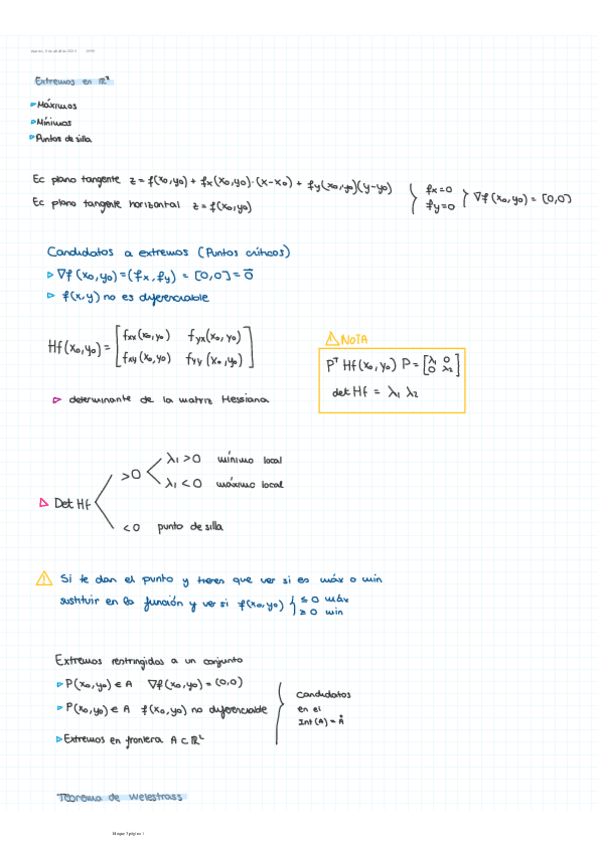 Extremos en ℝ³
▷Máximos
▷Mínimos
▷Puntos de silla
Ec plano tangente z = f(x₀,y₀) + fx(x₀,y₀)·(x-x₀) + fy(x₀,y₀)(y-y₀) { fx=0 fy=0 } ∇f(x₀,y₀) = [0,0]
Ec plano tangente horizontal z = f(x₀,y₀)
Candidatos a extremos (Puntos críticos)
▷ ∇f(x₀,y₀) = (fx, fy) = [0,0] = 0̄
▷ f(x,y) no es diferenciable
Hf(x₀,y₀) = [fxx(x₀,y₀) fyx(x₀,y₀)
fxy(x₀,y₀) fyy(x₀,y₀)]
⚠ NOTA
Pᵀ Hf(x₀,y₀) P = [λ₁ 0
0 λ₂]
det Hf = λ₁ λ₂
▷ determinante de la matriz Hessiana
▷ Det Hf
>0
λ₁ >0 mínimo local
λ₁ <0 máximo local
<0 punto de silla
⚠ Si te dan el punto y tienes que ver si es máx o min
sustituir en la función y ver si f(x₀,y₀) { ≤ 0 máx
≥ 0 min
Extremos restringidos a un conjunto
▷P(x₀,y₀) ∈ A ∇f(x₀,y₀) = (0,0)
▷P(x₀,y₀) ∈ A f(x₀,y₀) no diferenciable
▷Extremos en frontera A ⊂ ℝ²
Candidatos
en el
Int(A) = Å
Teorema de Weiestrass